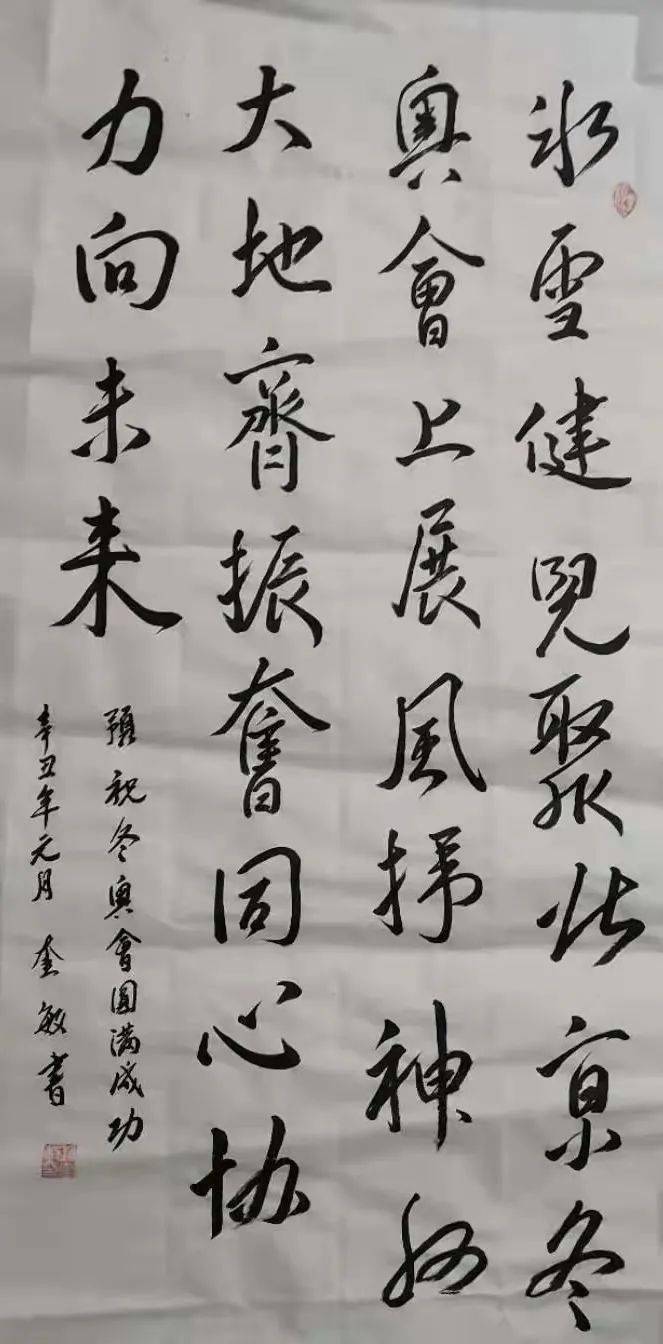 冰雪健兒聚北京冬
奥會上展風掦神州
大地齊振奮同心协
力向未来
預祝冬奥會圆满成功
辛丑年元月 奎敏書